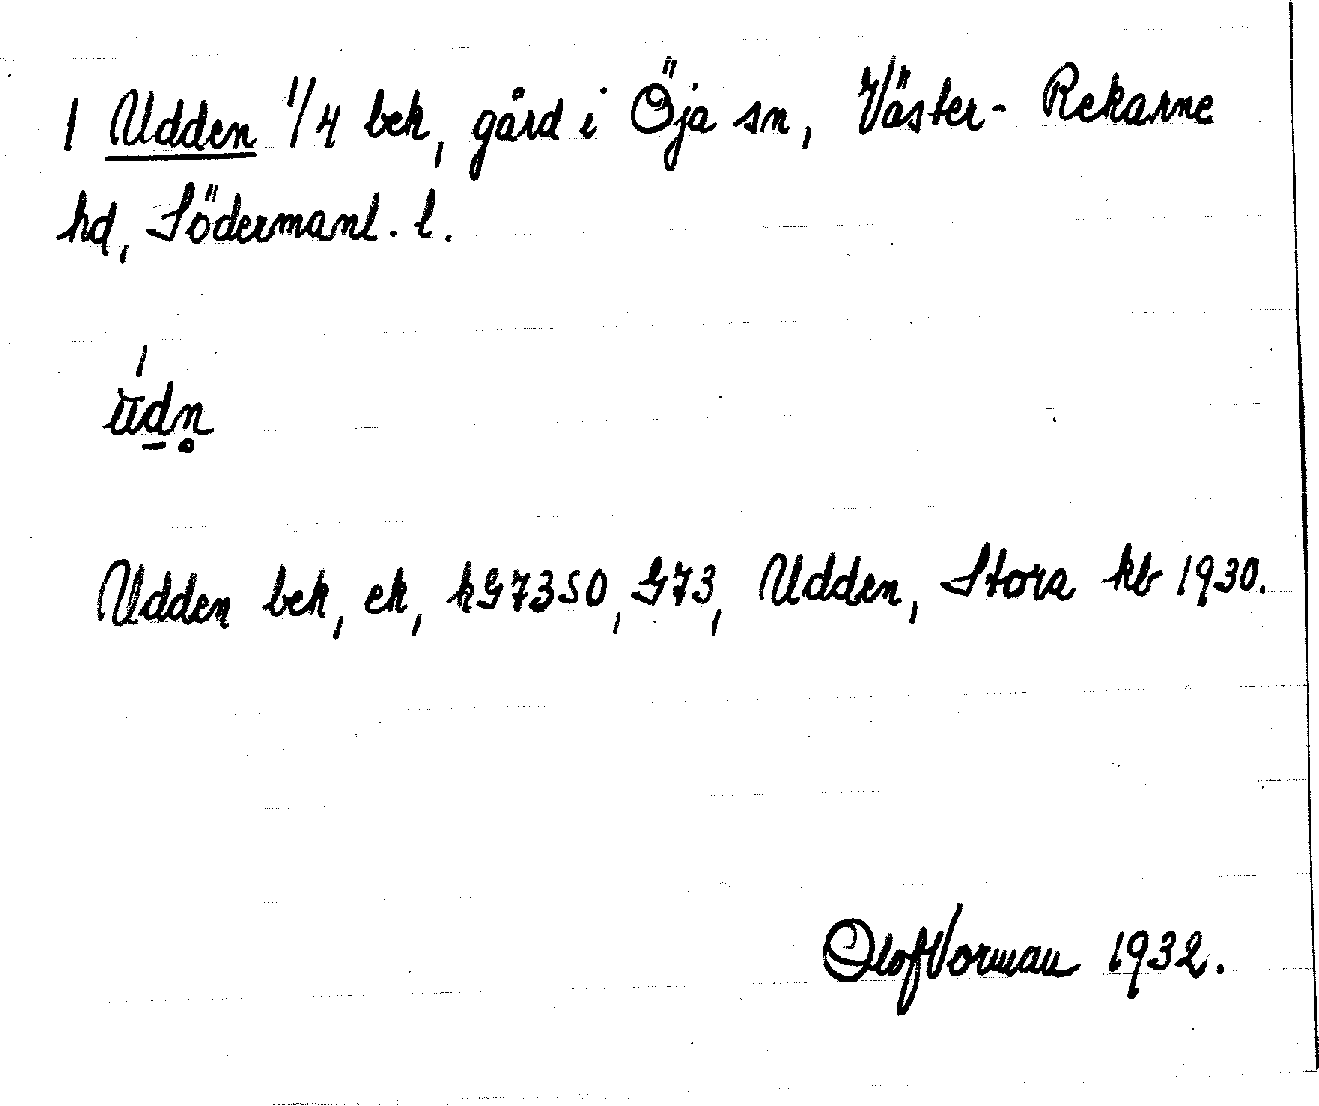 1 Udden 1/4 bek, gård i Öja sn, Väster-Rekarne
hd, Södermanl. l.
Udden bek, ek, hG73SO, G73, Udden, Stora kb 1930.
Olof Vorman 1932.